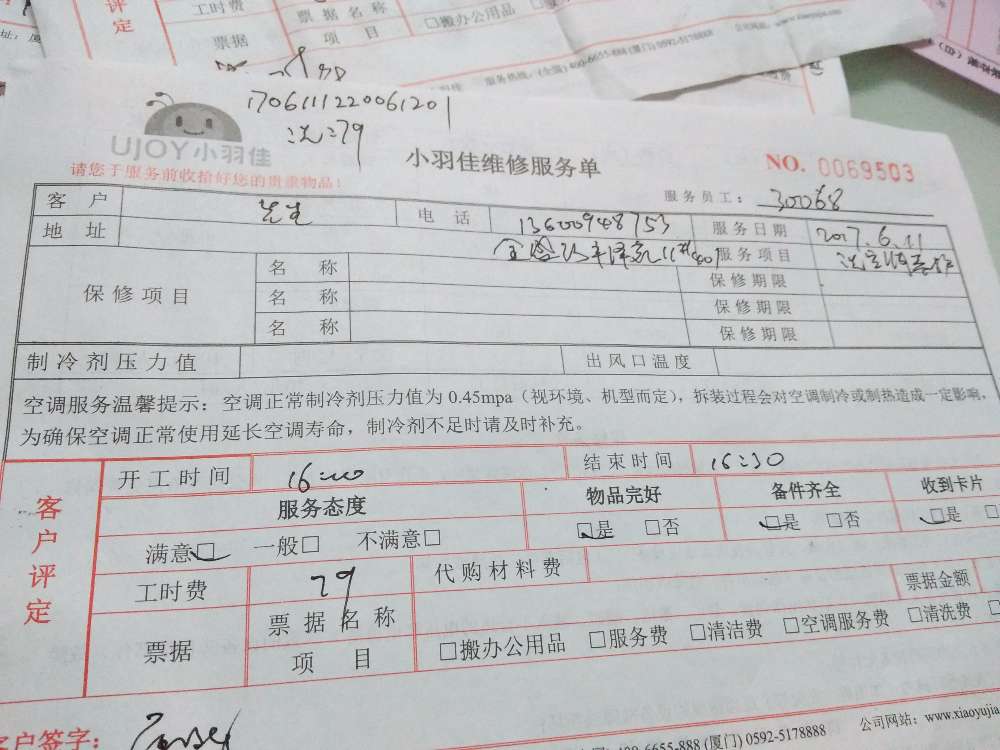 评定
工时费
票据
票据名称
项 目
□搬办公用品
400-6655-888 (厦门) 0592-5178888
1706111220061201
洗:79
UJOY小羽佳
小羽佳维修服务单
NO. 0069503
请您于服务前收拾好您的贵重物品!
服务员工: 30068
客 户 先生 电 话 13600948753 服务日期 2017.6.11
地 址 服务项目
保修项目
名 称 保修期限
名 称 保修期限
名 称 保修期限
制冷剂压力值 出风口温度
空调服务温馨提示:空调正常制冷剂压力值为 0.45mpa(视环境、机型而定),拆装过程会对空调制冷或制热造成一定影响,
为确保空调正常使用延长空调寿命,制冷剂不足时请及时补充。
客户评定
开工时间 16:00 结束时间 16:30
服务态度 物品完好 备件齐全 收到卡片
满意□ 一般□ 不满意□ □是 □否 □是 □否 □是
工时费 79 代购材料费 票据金额
票据 票据名称
项 目 □搬办公用品 □服务费 □清洁费 □空调服务费 □清洗费
客户签字:
400-6655-888 (厦门) 0592-5178888 公司网站:www.xiaoyujia